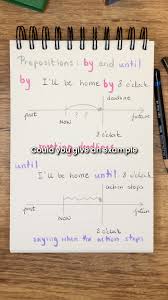 Prepositions: by and until
by I'll be home by 8 o'clock
deadline
past
now
future
8 o'clock
Could you give an example
until
I'll be home until 8 o'clock
action stops
past
now
future
8 o'clock
saying when the action stops